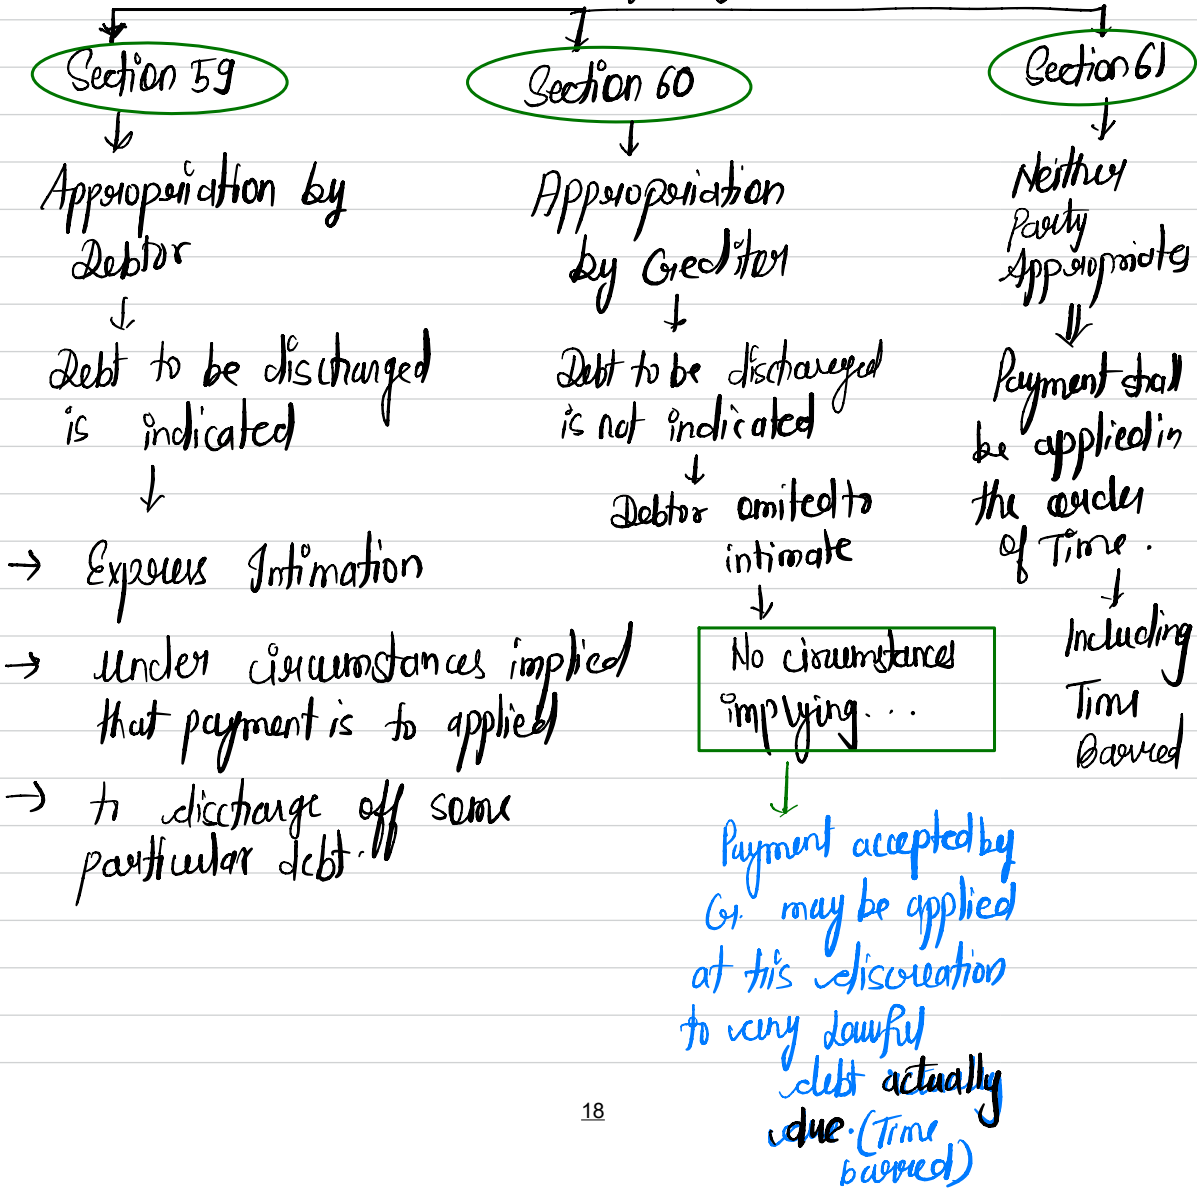 Section 59
Appropriation by
Debtor
Debt to be discharged
is indicated
→ Express Intimation
→ Under circumstances implied
that payment is to applied
→ to discharge off some
particular debt.
Section 60
Appropriation
by Creditor
Debt to be discharged
is not indicated
Debtor omited to
intimate
No circumstances
implying...
Payment accepted by
Cr. may be applied
at his discreation
to any lawful
debt actually
due. (Time
barred)
Section 61
Neither
Party
Appropriates
Payment shall
be applied in
the order
of Time.
Including
Time
Barred
18